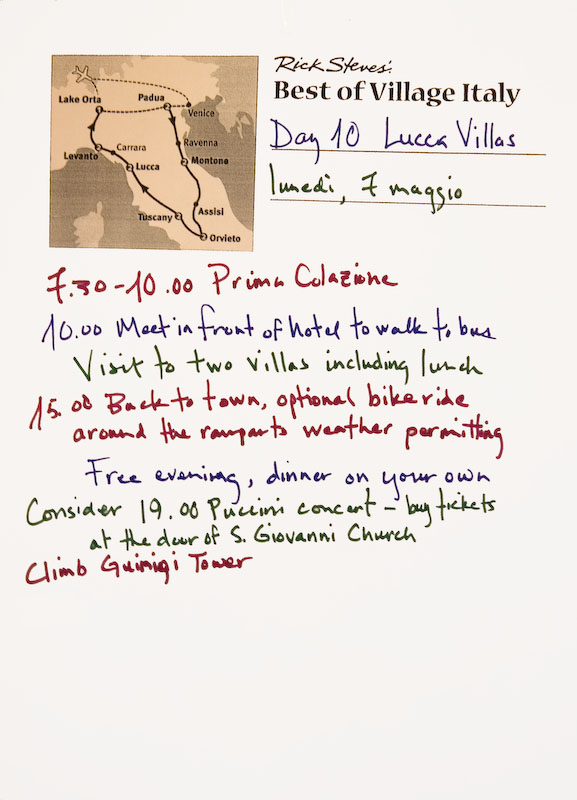 Rick Steves'
Best of Village Italy
Day 10 Lucca Villas
lunedì, 7 maggio
Lake Orta
Padua
Venice
Levanto
Carrara
Ravenna
Lucca
Montone
Tuscany
Assisi
Orvieto
7.30-10.00 Prima Colazione
10.00 Meet in front of hotel to walk to bus
Visit to two villas including lunch
15.00 Back to town, optional bike ride
around the ramparts weather permitting
Free evening, dinner on your own
Consider 19.00 Puccini concert - buy tickets
at the door of S. Giovanni Church
Climb Guinigi Tower